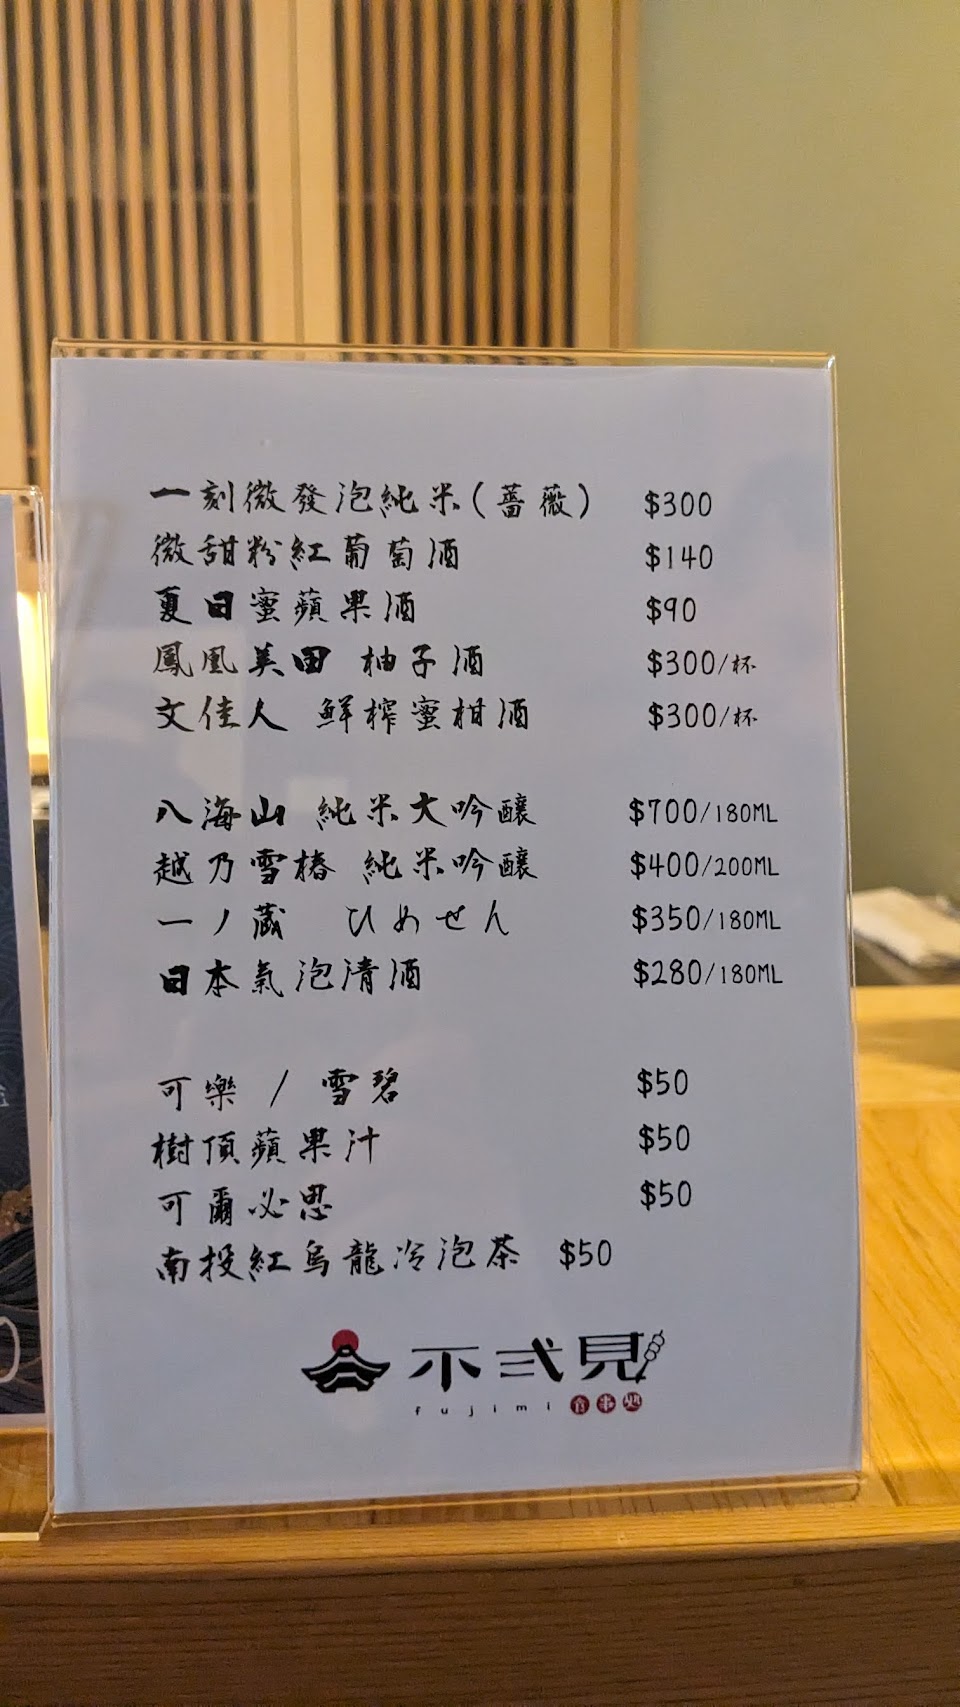 一刻微發泡純米(薔薇) $300
微甜粉紅葡萄酒 $140
夏日蜜蘋果酒 $90
鳳凰美田 柚子酒 $300/杯
文佳人 鮮榨蜜柑酒 $300/杯
八海山 純米大吟釀 $700/180ML
越乃雪椿 純米吟釀 $400/200ML
一ノ蔵 ひめぜん $350/180ML
日本氣泡清酒 $280/180ML
可樂 / 雪碧 $50
樹頂蘋果汁 $50
可爾必思 $50
南投紅烏龍冷泡茶 $50
不弍見
fujimi 食事処